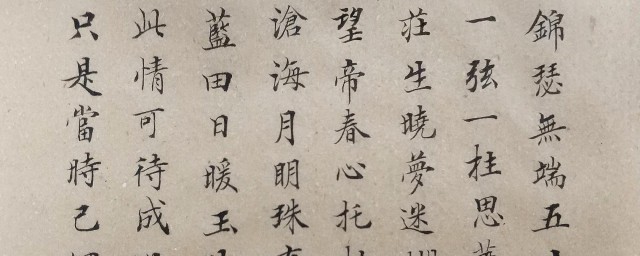 錦瑟無端五
一弦一柱思
莊生曉夢迷
望帝春心托
滄海月明珠
藍田日暖玉
此情可待成
只是當時已